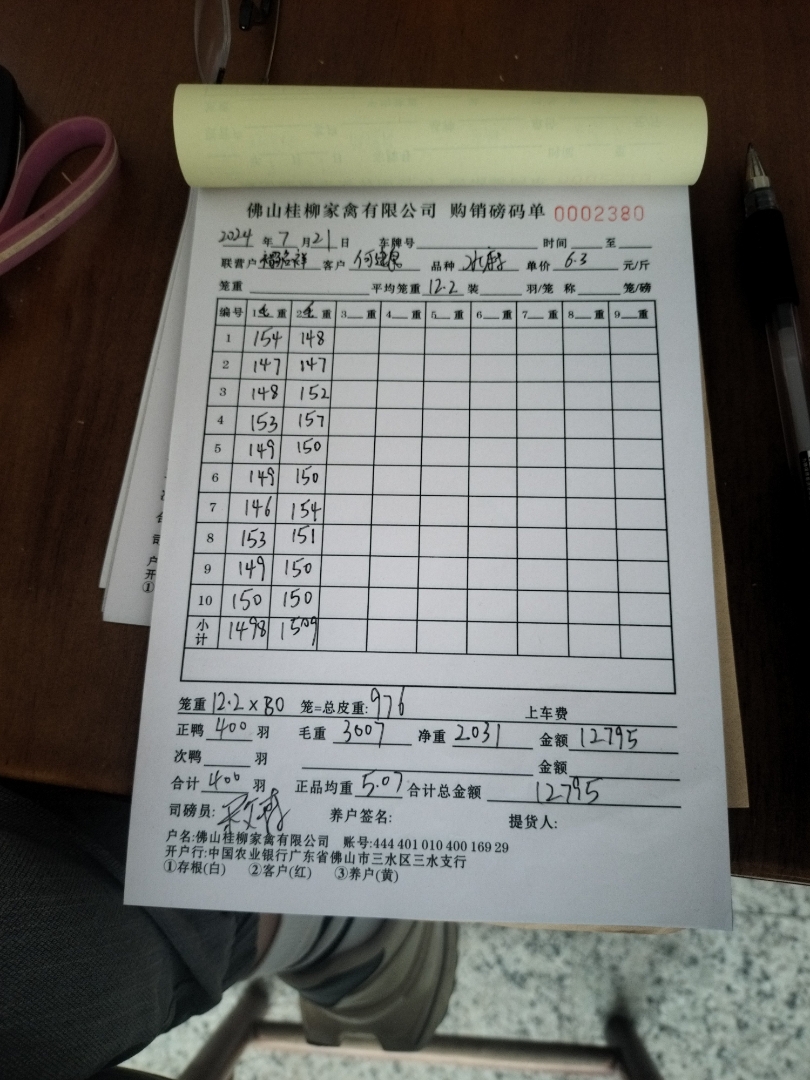 佛山桂柳家禽有限公司 购销磅码单 0002380
2024 年 7 月 21 日 车牌号 时间 至
联营户 客户 品种 单价 6.3 元/斤
笼重 平均笼重 12.2 装 羽/笼 称 笼/磅
编号 1毛重 2毛重 3重 4重 5重 6重 7重 8重 9重
1 154 148
2 147 147
3 148 152
4 153 157
5 149 150
6 149 150
7 146 154
8 153 151
9 149 150
10 150 150
小计 1498 1509
笼重 12.2×80 笼=总皮重: 976 上车费
正鸭 400 羽 毛重 3007 净重 2.031 金额 12795
次鸭 羽 金额
合计 400 羽 正品均重 5.07 合计总金额 12795
司磅员: 养户签名: 提货人:
户名:佛山桂柳家禽有限公司 账号:444 401 010 400 169 29
开户行:中国农业银行广东省佛山市三水区三水支行
①存根(白) ②客户(红) ③养户(黄)